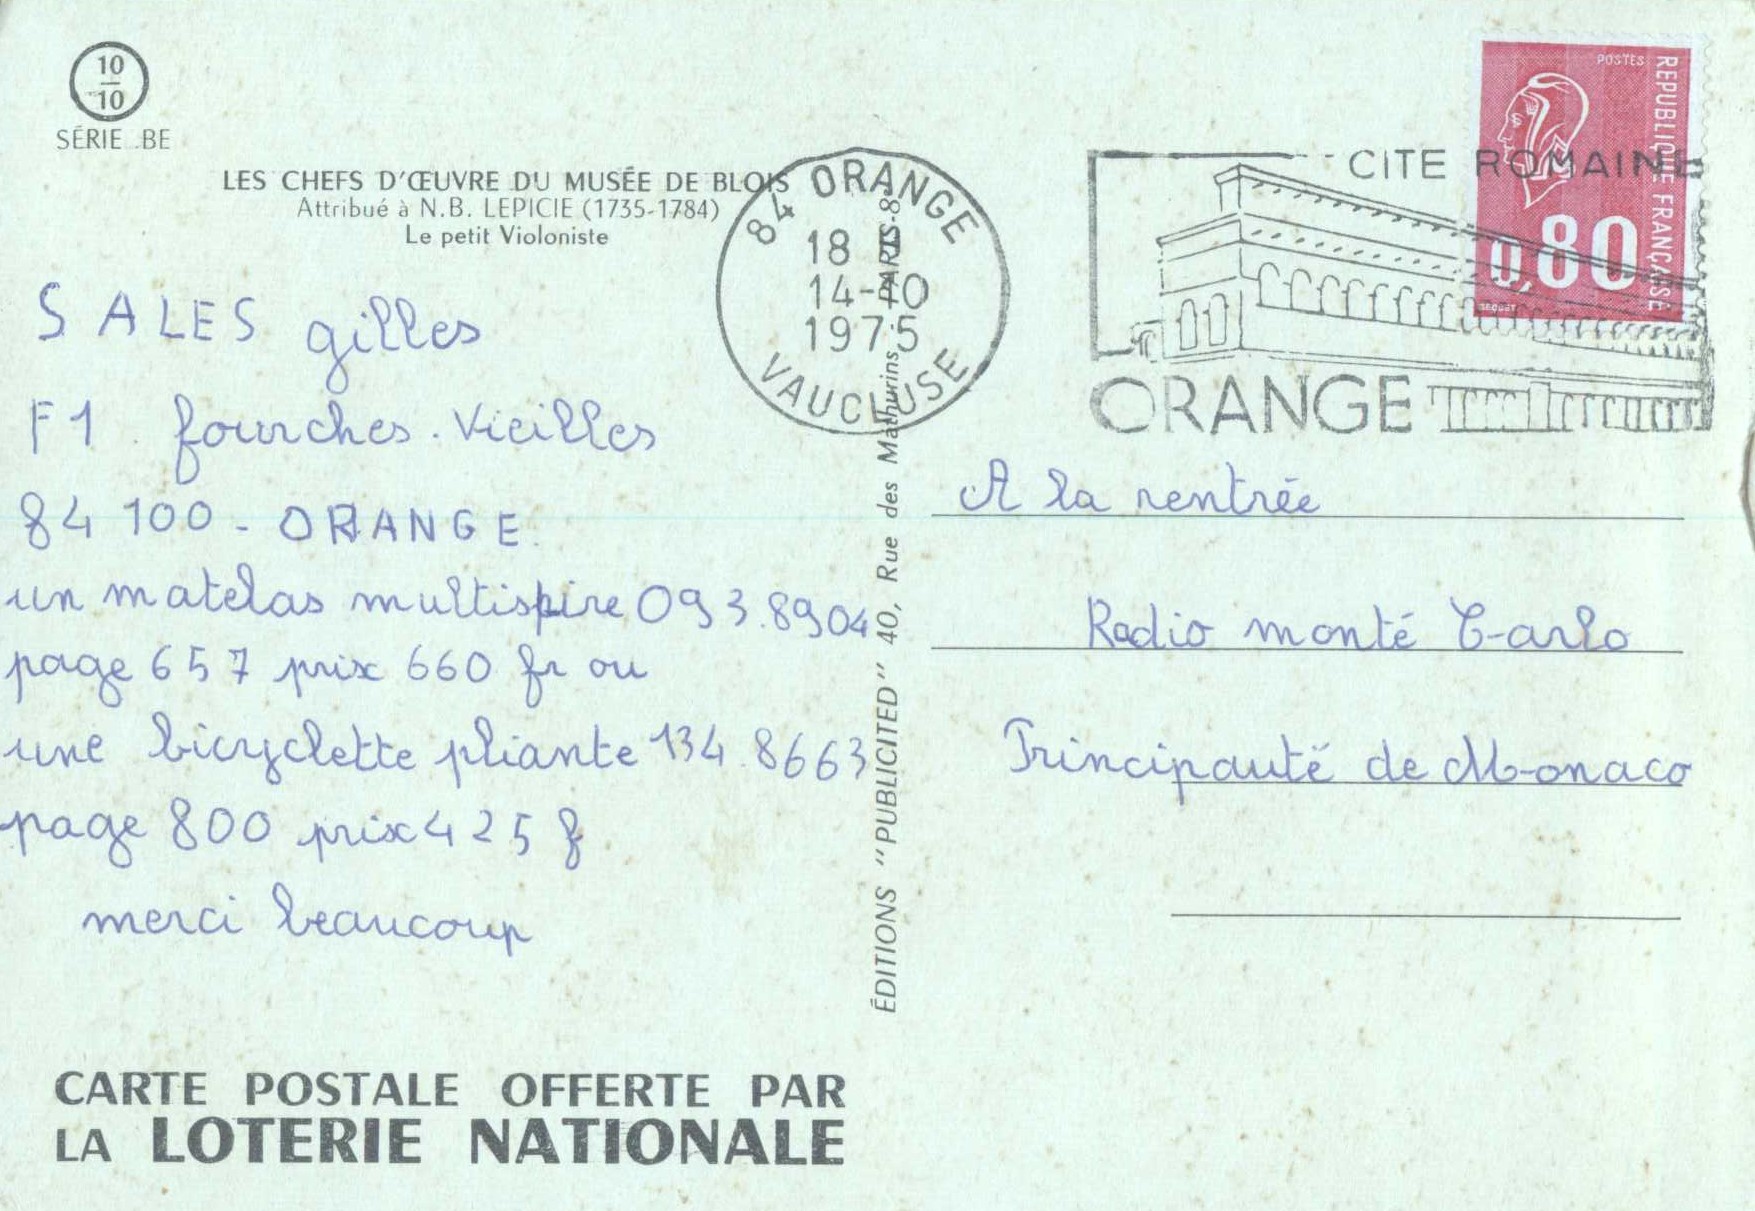 10
10
SÉRIE .BE
LES CHEFS D'ŒUVRE DU MUSÉE DE BLOIS
Attribué à N.B. LEPICIE (1735-1784)
Le petit Violoniste
84 ORANGE
18 H
14-10
1975
VAUCLUSE
CITE ROMAINE
ORANGE
POSTES
REPUBLIQUE FRANÇAISE
0,80
BEQUET
SALES gilles
F1. fourches. Vieilles
84 100 - ORANGE.
un matelas multispire 093.8904
page 657 prix 660 fr ou
une bicyclette pliante 134.8663
page 800 prix 425 f
merci beaucoup
ÉDITIONS "PUBLICITED" 40, Rue des Mathurins, PARIS-8e
A la rentrée
Radio monté Carlo
Principauté de Monaco
CARTE POSTALE OFFERTE PAR
LA LOTERIE NATIONALE